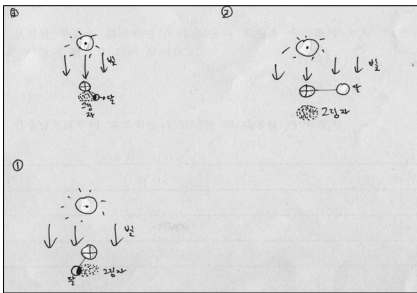 ③
빛
달
그림
자
②
빛
달
그림자
①
빛
달
그림자